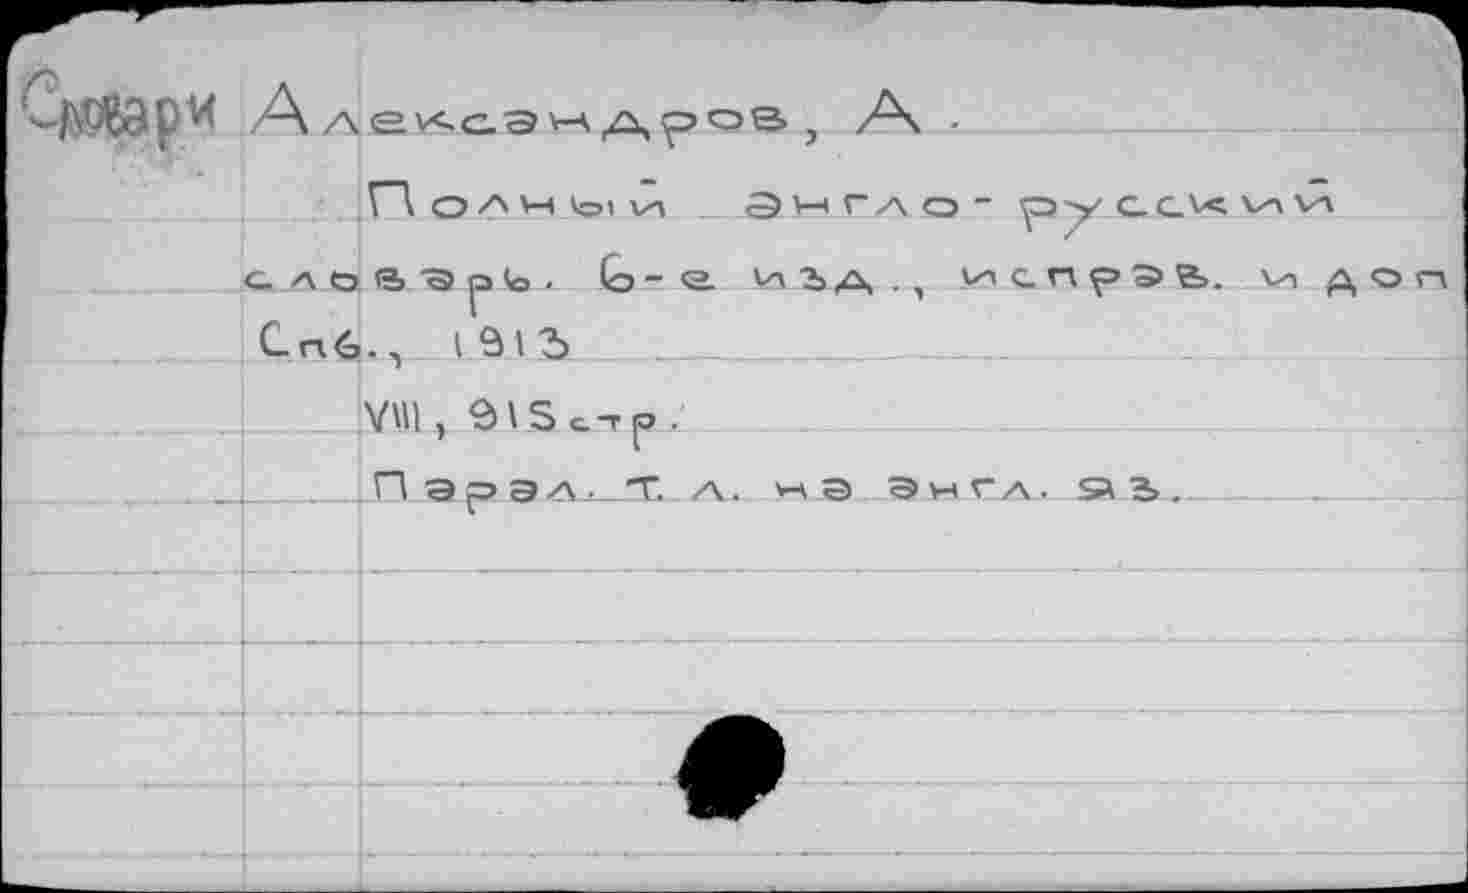 Словари Александров, А.
Полный англо-русский
словарь. 6-е изд., исправ. и доп
Спб., 1913
VIII, 915 стр.
Парал. т. л. на англ. яз.